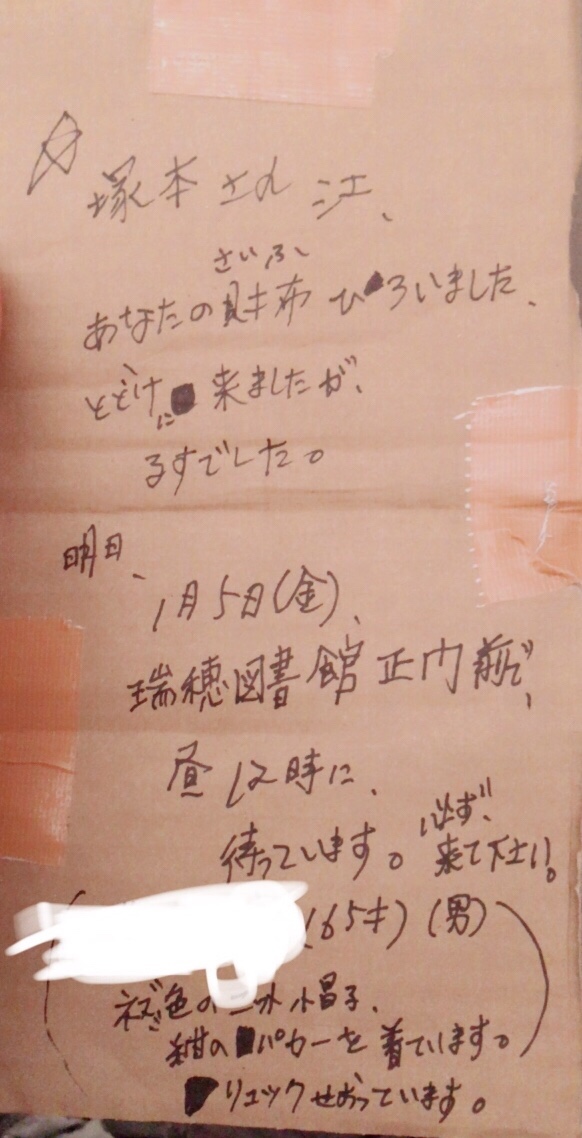 塚本さん江、
さいふ
あなたの財布ひろいました、
とどけに来ましたが、
るすでした。
明日、
1月5日(金)、
瑞穂図書館正門前で、
昼12時に、
待っています。必ず、来て下さい。
(65才)(男)
ネズ色のニット帽子、
紺のパーカーを着ています。
リュックせおっています。